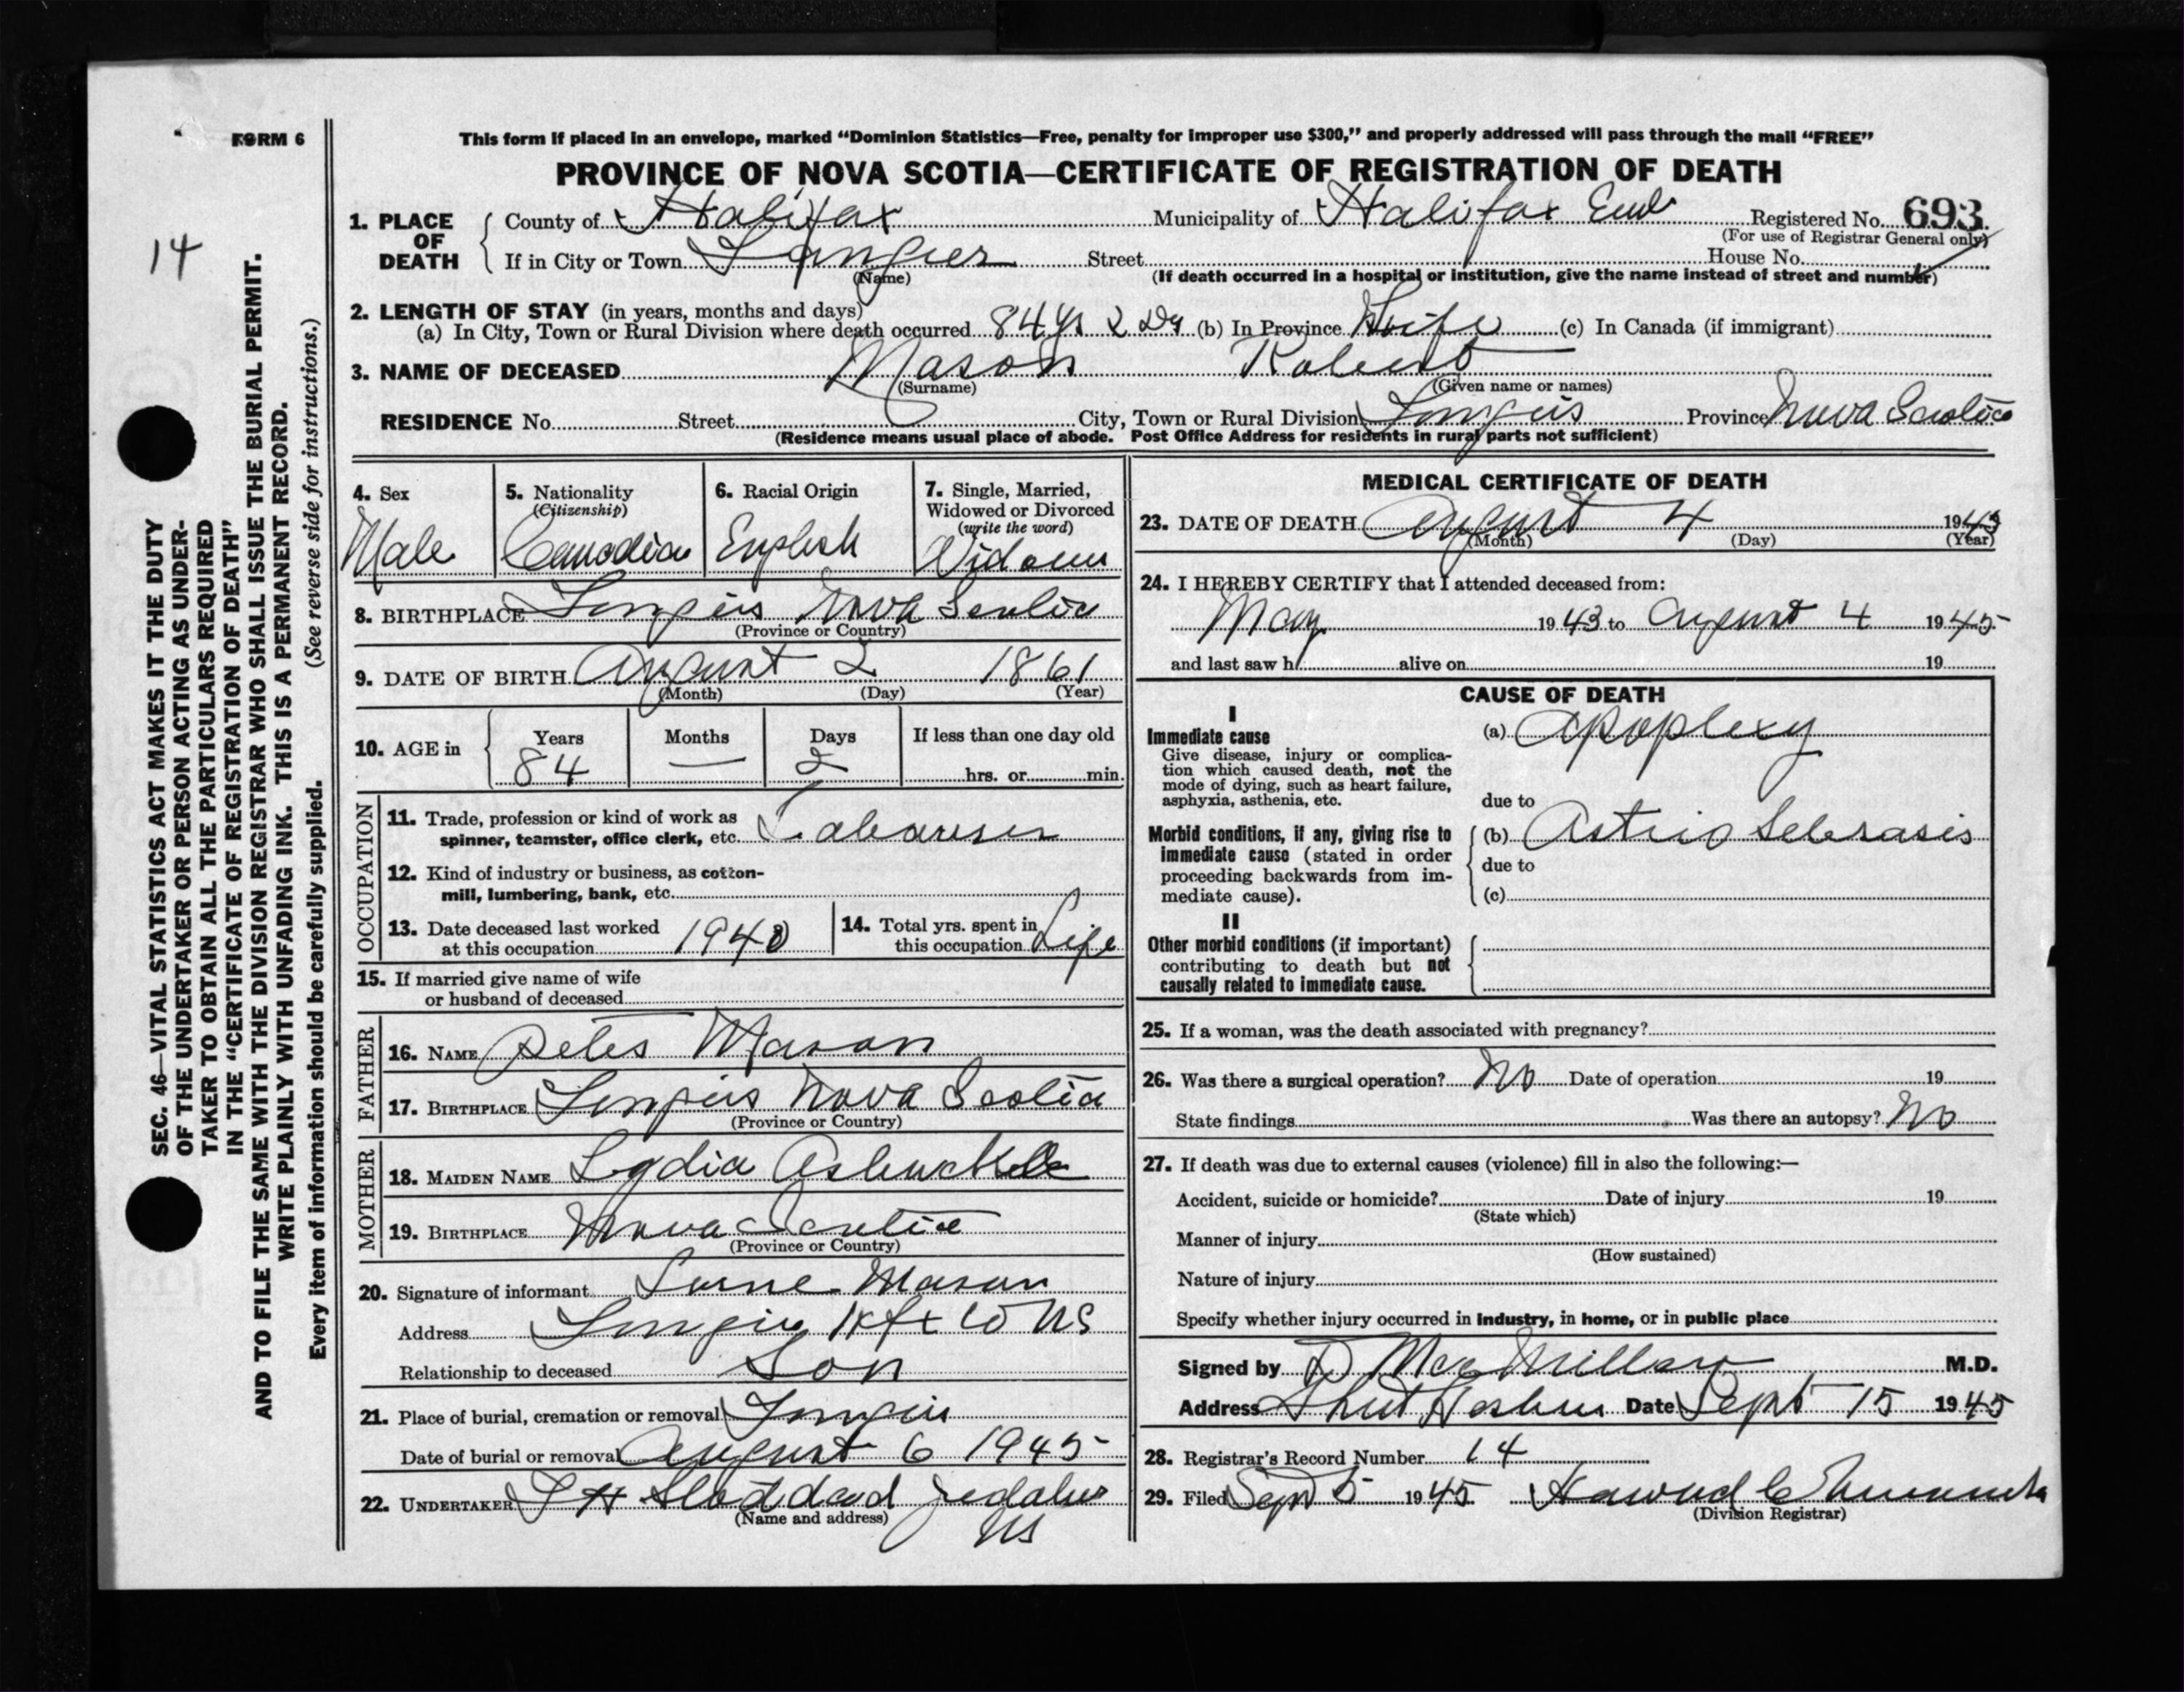 FORM 6
14
SEC. 46—VITAL STATISTICS ACT MAKES IT THE DUTY
OF THE UNDERTAKER OR PERSON ACTING AS UNDER-
TAKER TO OBTAIN ALL THE PARTICULARS REQUIRED
IN THE "CERTIFICATE OF REGISTRATION OF DEATH"
AND TO FILE THE SAME WITH THE DIVISION REGISTRAR WHO SHALL ISSUE THE BURIAL PERMIT.
WRITE PLAINLY WITH UNFADING INK. THIS IS A PERMANENT RECORD.
Every item of information should be carefully supplied. (See reverse side for instructions.)
This form if placed in an envelope, marked "Dominion Statistics—Free, penalty for improper use $300," and properly addressed will pass through the mail "FREE"
PROVINCE OF NOVA SCOTIA—CERTIFICATE OF REGISTRATION OF DEATH
1. PLACE OF DEATH County of Halifax Municipality of Halifax Registered No. 693
(For use of Registrar General only)
If in City or Town Tangier Street House No.
(Name) (If death occurred in a hospital or institution, give the name instead of street and number)
2. LENGTH OF STAY (in years, months and days)
(a) In City, Town or Rural Division where death occurred 84 Yrs 2 Dy (b) In Province Life (c) In Canada (if immigrant)
3. NAME OF DECEASED Mason Robert
(Surname) (Given name or names)
RESIDENCE No. Street City, Town or Rural Division Tangier Province Nova Scotia
(Residence means usual place of abode. Post Office Address for residents in rural parts not sufficient)
4. Sex
Male
5. Nationality
(Citizenship)
Canadian
6. Racial Origin
English
7. Single, Married,
Widowed or Divorced
(write the word)
8. BIRTHPLACE Tangier Nova Scotia
(Province or Country)
9. DATE OF BIRTH August 2 1861
(Month) (Day) (Year)
10. AGE in Years Months Days If less than one day old
84 — 2 hrs. or min.
OCCUPATION
11. Trade, profession or kind of work as
spinner, teamster, office clerk, etc.
12. Kind of industry or business, as cotton-
mill, lumbering, bank, etc.
13. Date deceased last worked
at this occupation 1940
14. Total yrs. spent in
this occupation Life
15. If married give name of wife
or husband of deceased
FATHER
16. NAME Peter Mason
17. BIRTHPLACE Tangier Nova Scotia
(Province or Country)
MOTHER
18. MAIDEN NAME Lydia
19. BIRTHPLACE Nova Scotia
(Province or Country)
20. Signature of informant Lorne Mason
Address Tangier Hfx Co NS
Relationship to deceased Son
21. Place of burial, cremation or removal Tangier
Date of burial or removal August 6 1945
22. UNDERTAKER Stoddard
(Name and address)
NS
MEDICAL CERTIFICATE OF DEATH
23. DATE OF DEATH August 4 1945
(Month) (Day) (Year)
24. I HEREBY CERTIFY that I attended deceased from:
May 1943 to August 4 1945
and last saw h alive on 19
CAUSE OF DEATH
I
Immediate cause
Give disease, injury or complica-
tion which caused death, not the
mode of dying, such as heart failure,
asphyxia, asthenia, etc.
(a) Apoplexy
due to
Morbid conditions, if any, giving rise to
immediate cause (stated in order
proceeding backwards from im-
mediate cause).
(b)
due to
(c)
II
Other morbid conditions (if important)
contributing to death but not
causally related to immediate cause.
25. If a woman, was the death associated with pregnancy?
26. Was there a surgical operation? No Date of operation 19
State findings Was there an autopsy? No
27. If death was due to external causes (violence) fill in also the following:—
Accident, suicide or homicide? Date of injury 19
(State which)
Manner of injury
(How sustained)
Nature of injury
Specify whether injury occurred in industry, in home, or in public place
Signed by D MacMillan M.D.
Address Sheet Harbour Date Sept 15 1945
28. Registrar's Record Number 14
29. Filed Sept 1945
(Division Registrar)